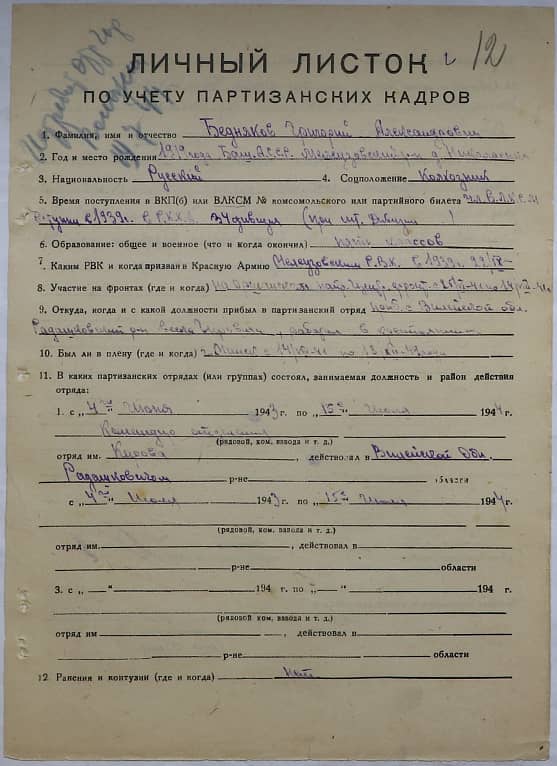 12
ЛИЧНЫЙ ЛИСТОК
ПО УЧЕТУ ПАРТИЗАНСКИХ КАДРОВ
1. Фамилия, имя и отчество Бедняков Григорий Александрович
2. Год и место рождения 1919 года Баш. А.С.С.Р.
3. Национальность Русский 4. Соцположение Колхозник
5. Время поступления в ВКП(б) или ВЛКСМ № комсомольского или партийного билета чл. В.Л.К.С.М
в 1939г. в Р.К.К.А. 34 дивизия (при шт. Дивизии)
6. Образование: общее и военное (что и когда окончил) пять классов
7. Каким РВК и когда призван в Красную Армию Мелеузовским Р.В.К. в 1939г.
8. Участие на фронтах (где и когда)
9. Откуда, когда и с какой должности прибыл в партизанский отряд Вилейской обл.
Радашковский
10. Был ли в плену (где и когда) г. Минск с
11. В каких партизанских отрядах (или группах) состоял, занимаемая должность и район действия
отряда:
1. с „4го" Июня 1943г. по „15го" Июля 1944г.
Командир отделения
(рядовой, ком. взвода и т. д.)
отряд им. Кирова, действовал в Вилейской Обл.
Радашковичском р-не области
с „4го" Июля 1943г. по „15го" Июля 1944г.
(рядовой, ком. взвода и т. д.)
отряд им. , действовал в
р-не области
3. с „—" 194 г. по „—" 194 г.
(рядовой, ком. взвода и т. д.)
отряд им , действовал в
р-не области
12. Ранения и контузии (где и когда) нет